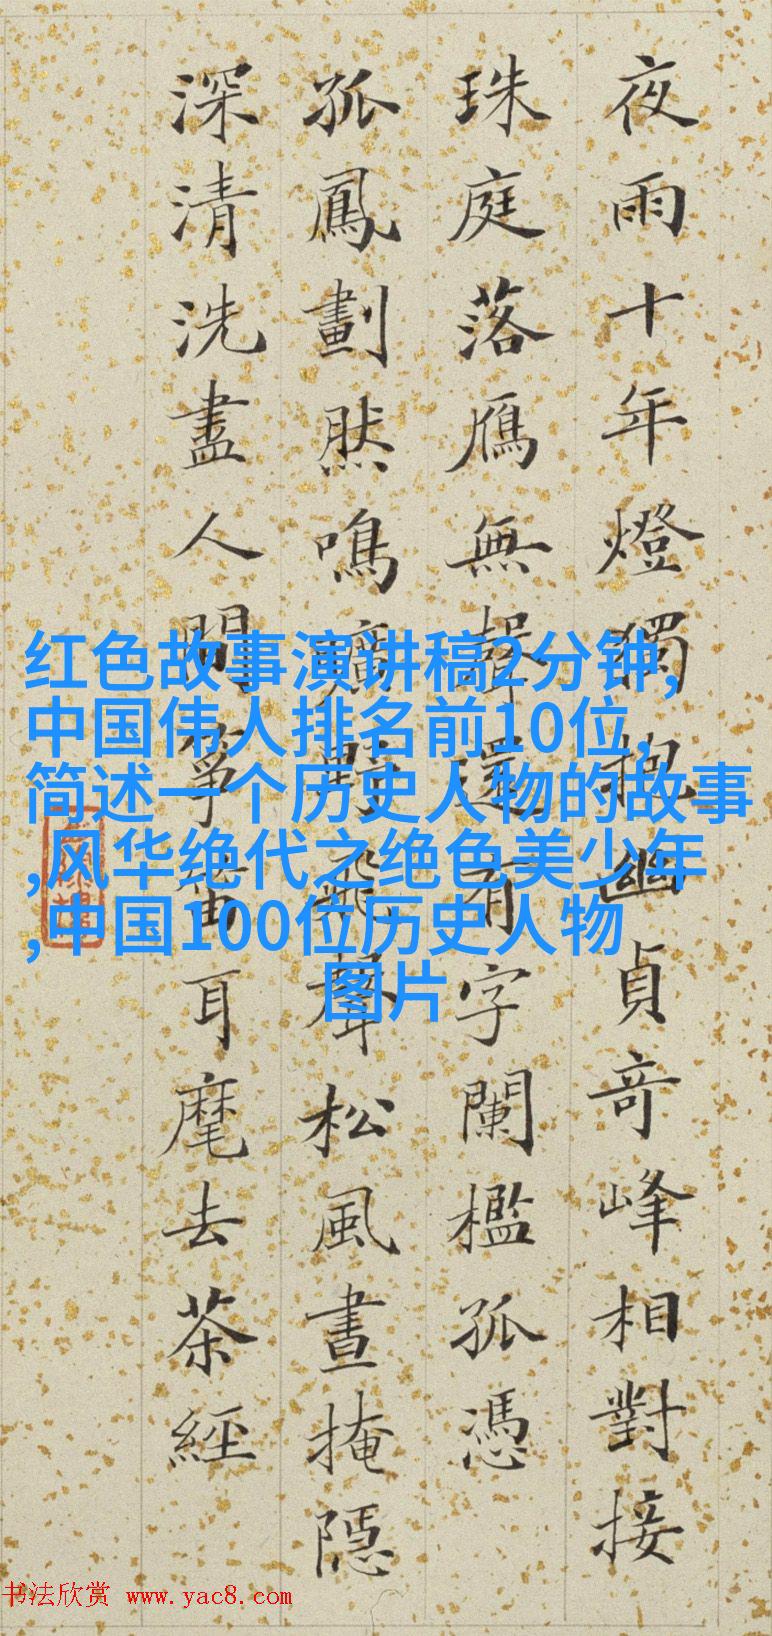 夜雨十年燈獨抱幽貞奇峰相對接
珠庭落鴈無聲還有字闌檻孤憑
孤鳳劃然鳴曠野飛聲松風晝掩隱
深清洗盡人間箏笛耳麾去茶經
红色故事演讲稿2分钟,
中国伟人排名前10位,
简述一个历史人物的故事
,风华绝代之绝色美少年
,中国100位历史人物
图片
书法欣赏 www.yac8.com